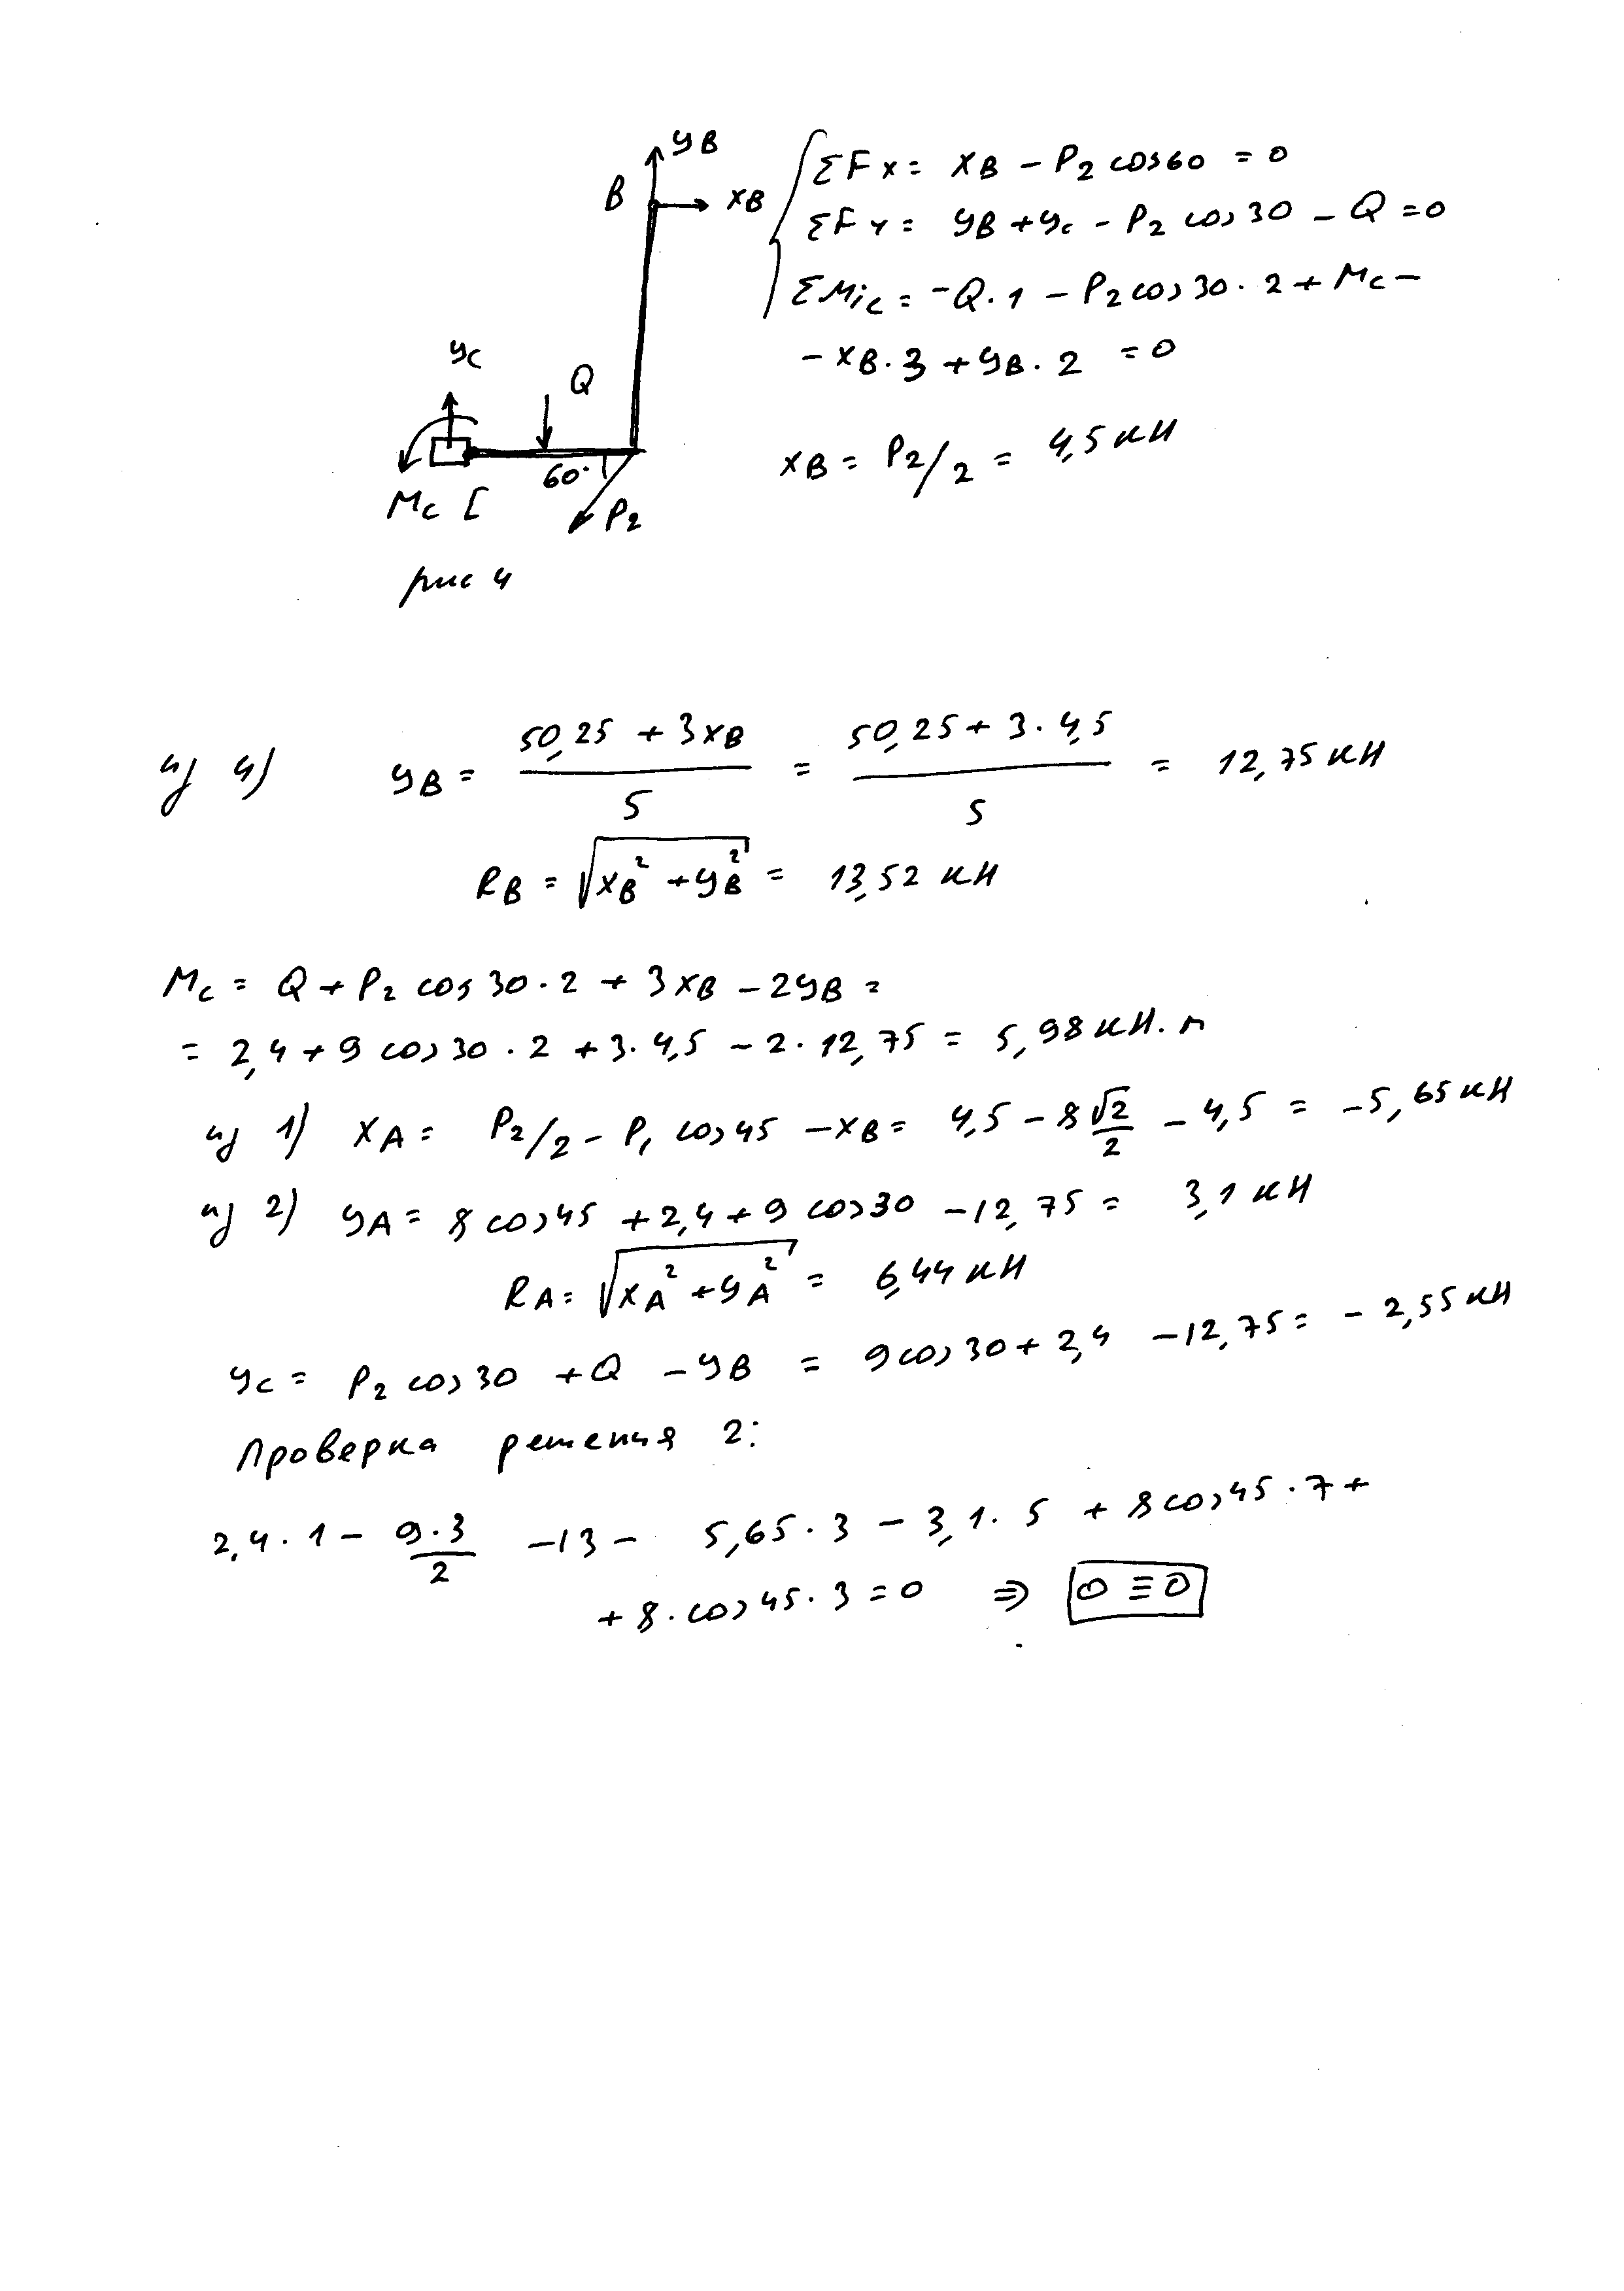 yB
B
xB
ΣFx = xB - P2 cos60 = 0
ΣFy = yB + yc - P2 cos 30 - Q = 0
ΣMic = -Q·1 - P2 cos 30·2 + Mc -
- xB·3 + yB·2 = 0
yc
Q
60°
Mc [
P2
xB = P2/2 = 4,5 кН
рис 4
из 4) yB = (50,25 + 3xB)/5 = (50,25 + 3·4,5)/5 = 12,75 кН
RB = √(xB² + yB²) = 13,52 кН
Mc = Q + P2 cos 30·2 + 3xB - 2yB =
= 2,4 + 9 cos 30·2 + 3·4,5 - 2·12,75 = 5,98 кН·м
из 1) xA = P2/2 - P1 cos 45 - xB = 4,5 - 8 √2/2 - 4,5 = -5,65 кН
из 2) yA = 8 cos 45 + 2,4 + 9 cos 30 - 12,75 = 3,1 кН
RA = √(xA² + yA²) = 6,44 кН
yc = P2 cos 30 + Q - yB = 9 cos 30 + 2,4 - 12,75 = - 2,55 кН
Проверка решения 2:
2,4·1 - (9·3)/2 - 13 - 5,65·3 - 3,1·5 + 8 cos 45·7 +
+ 8·cos 45·3 = 0 ⇒ 0 ≡ 0